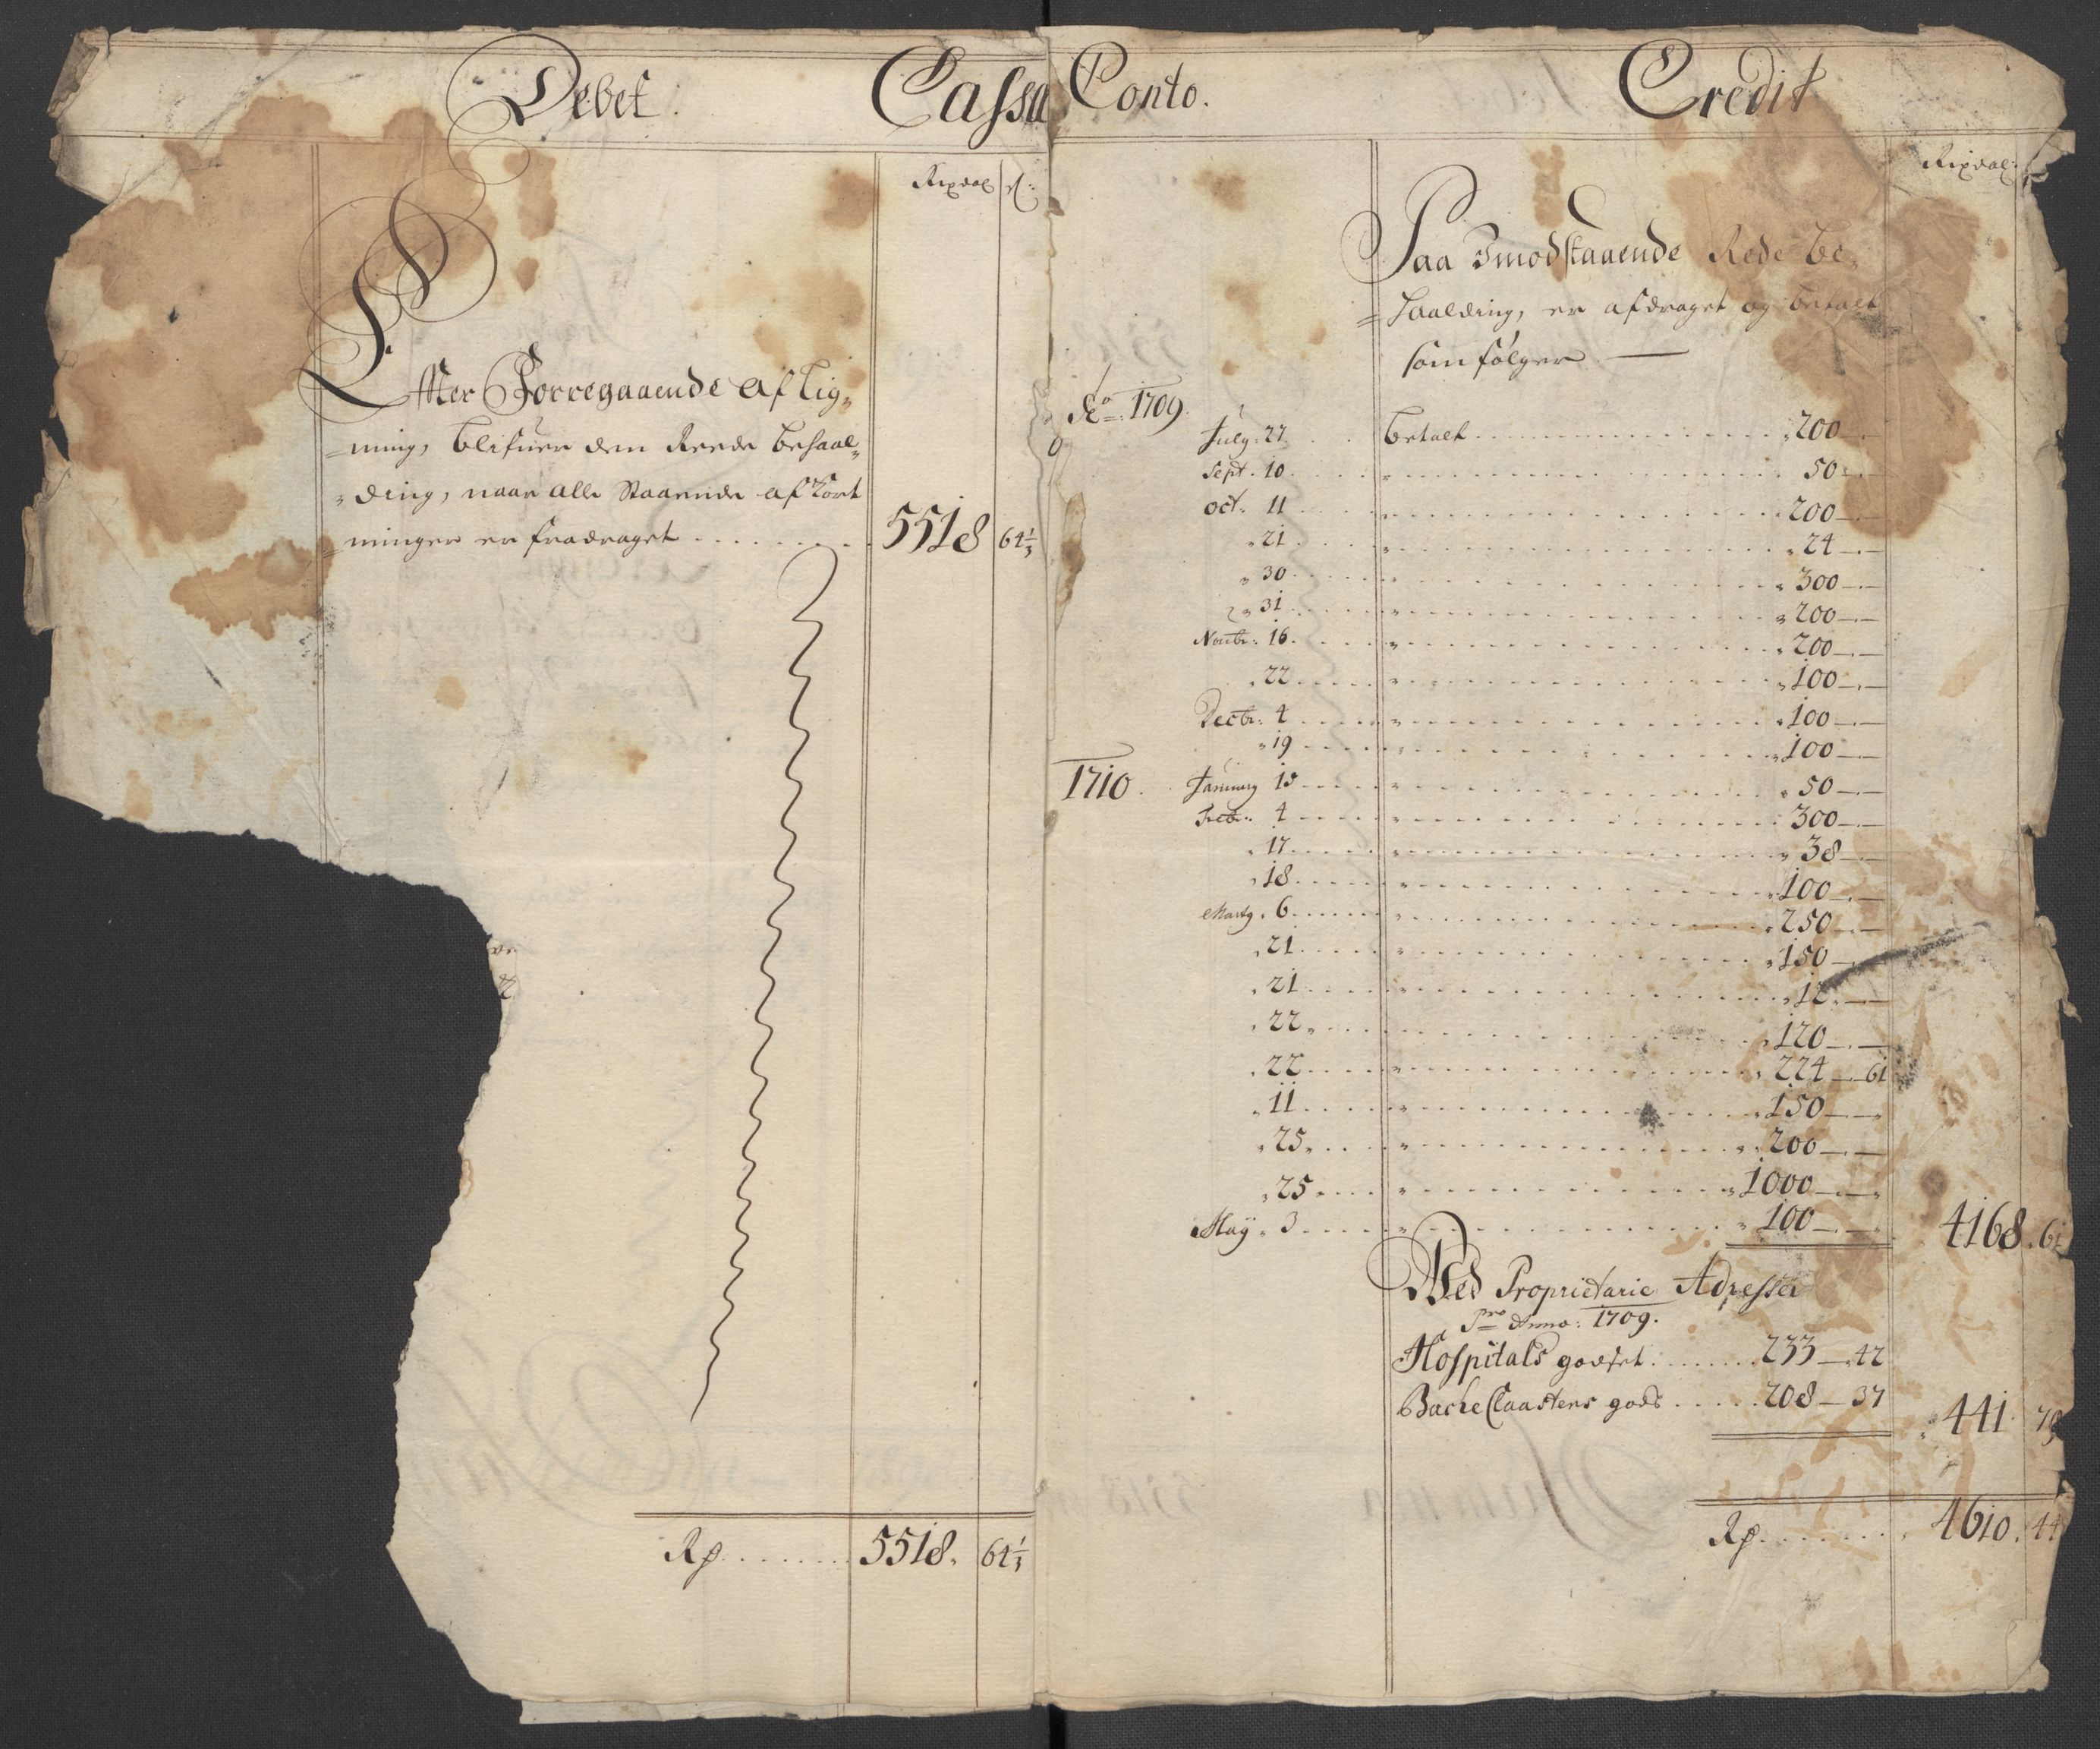 Debet. Cassa
Rixdal ß:
Effter Forregaaende aflig,
=ning, blifuer den Reede behaal,
"ding, naar alle Staaende afkort
=ninger er fradraget . . . . . . . . 5518 64 1/3
Rß. . . . . . . 5518. 64 1/3
Conto. Credit
Rixdal:
Paa Imodstaaende Rede be,
=haalding, er afdraget og betalt
som følger —
Ao: 1709.
July. 27 . . betalt . . . . . . 200 —
Sept. 10. . . " . . . . . . 50 —
oct. 11 . . . " . . . . . . 200 —
" 21 . . . " . . . . . . 24 —
" 30 . . . " . . . . . . 300 —
" 31 . . . " . . . . . . 200 —
Novbr: 16. . . " . . . . . . 200 —
" 22 . . . " . . . . . . 100 —
Decbr: 4 . . . " . . . . . . 100 —
" 19 . . . " . . . . . . 100 —
1710. January 15 . . . " . . . . . . 50 —
Febr: 4 . . . " . . . . . . 300 —
" 17 . . . " . . . . . . 38 —
" 18 . . . " . . . . . . 100 —
Marty. 6 . . . " . . . . . . 250 —
" 21 . . . " . . . . . . 150 —
" 21 . . . " . . . . . . 12 —
" 22 . . . " . . . . . . 120 —
" 22 . . . " . . . . . . 224 — 61
" 11 . . . " . . . . . . 150 —
" 25 . . . " . . . . . . 200 —
" 25 . . . " . . . . . . 1000 —
May. 3 . . . " . . . . . . 100 — 4168. 61
Ved Proprietarie Adresser
pro Anno: 1709.
Hospitals godset . . . . . 233 — 42
Bache Claasters gods . . . . . 208 — 37 441 79
Rß. . . . . . . 4610. 44